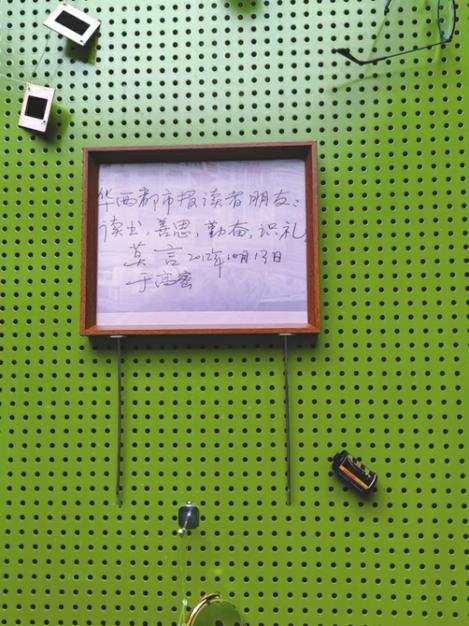 华西都市报读者朋友：
读书，善思，勤奋，识礼
莫言2012年10月13日
于高密